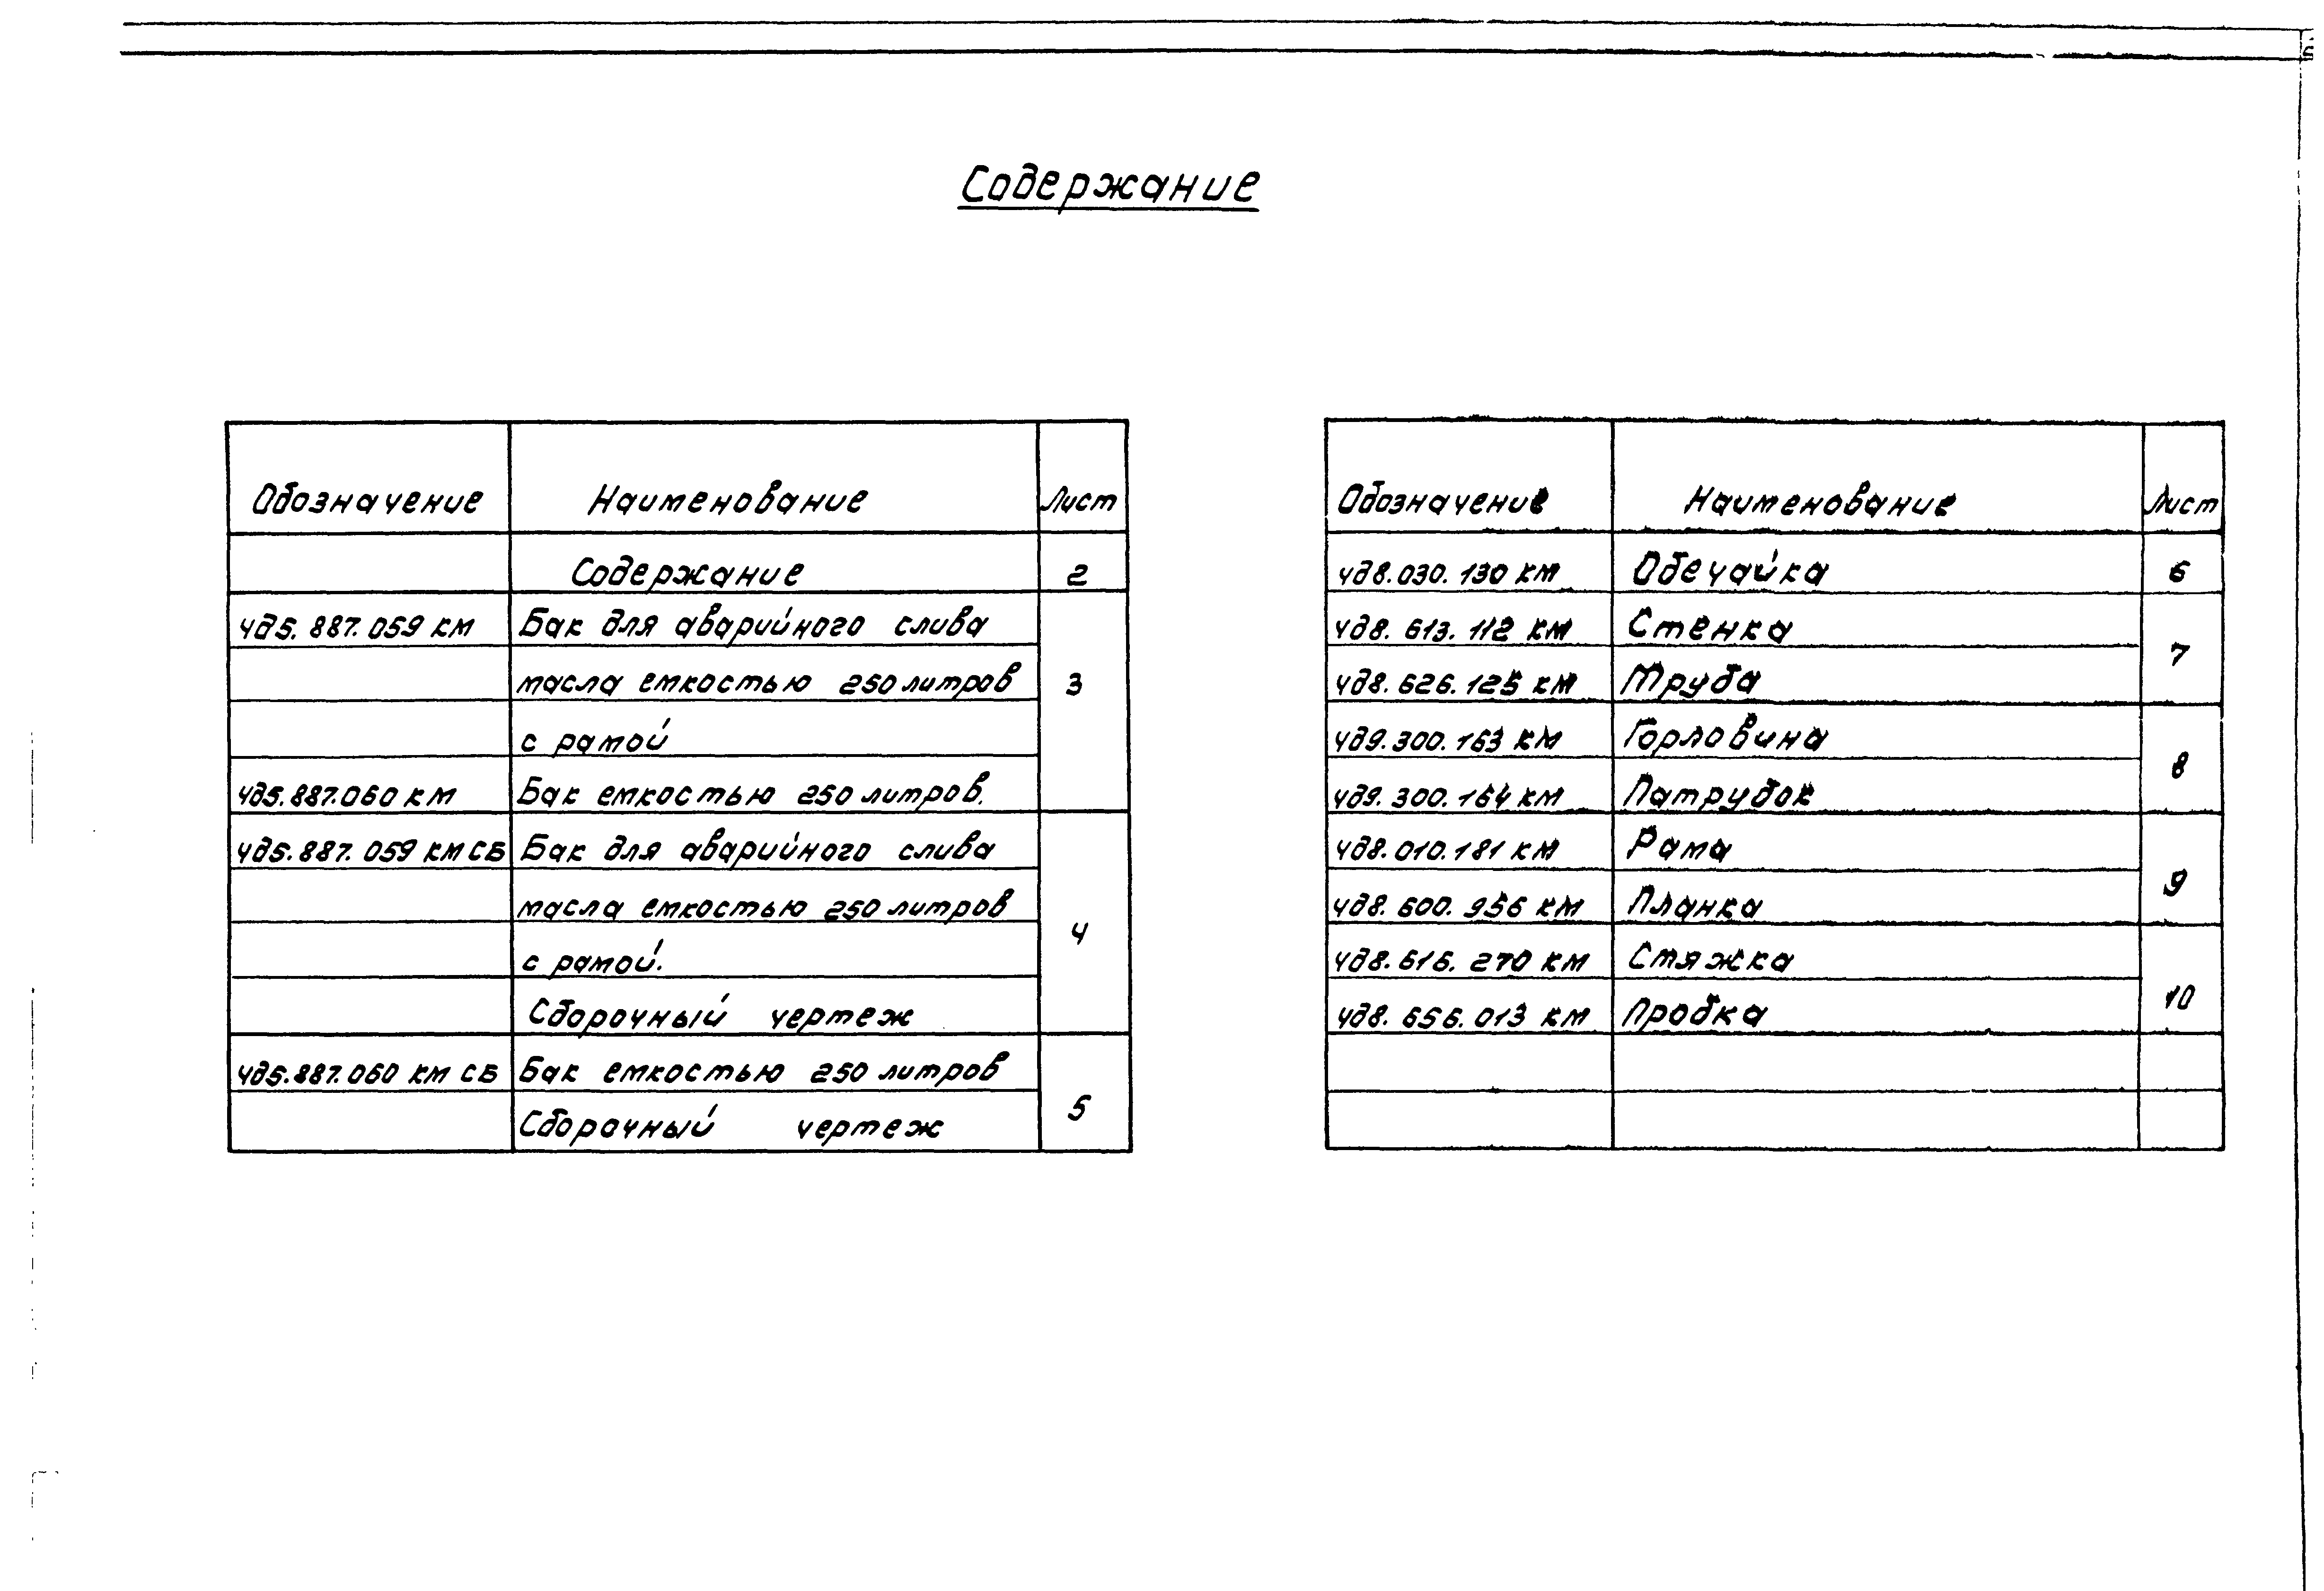 Содержание
Обозначение Наименование Лист
Содержание 2
чд5.887.059 км Бак для аварийного слива
масла емкостью 250 литров 3
с рамой
чд5.887.060 км Бак емкостью 250 литров.
чд5.887.059 км СБ Бак для аварийного слива
масла емкостью 250 литров
с рамой. 4
Сборочный чертеж
чд5.887.060 км СБ Бак емкостью 250 литров
Сборочный чертеж 5
Обозначение Наименование Лист
чд8.030.130 км Обечайка 6
чд8.613.112 км Стенка 7
чд8.626.125 км Труба
чд9.300.163 км Горловина 8
чд9.300.164 км Патрубок
чд8.010.181 км Рама 9
чд8.600.956 км Планка
чд8.616.270 км Стяжка 10
чд8.656.013 км Пробка